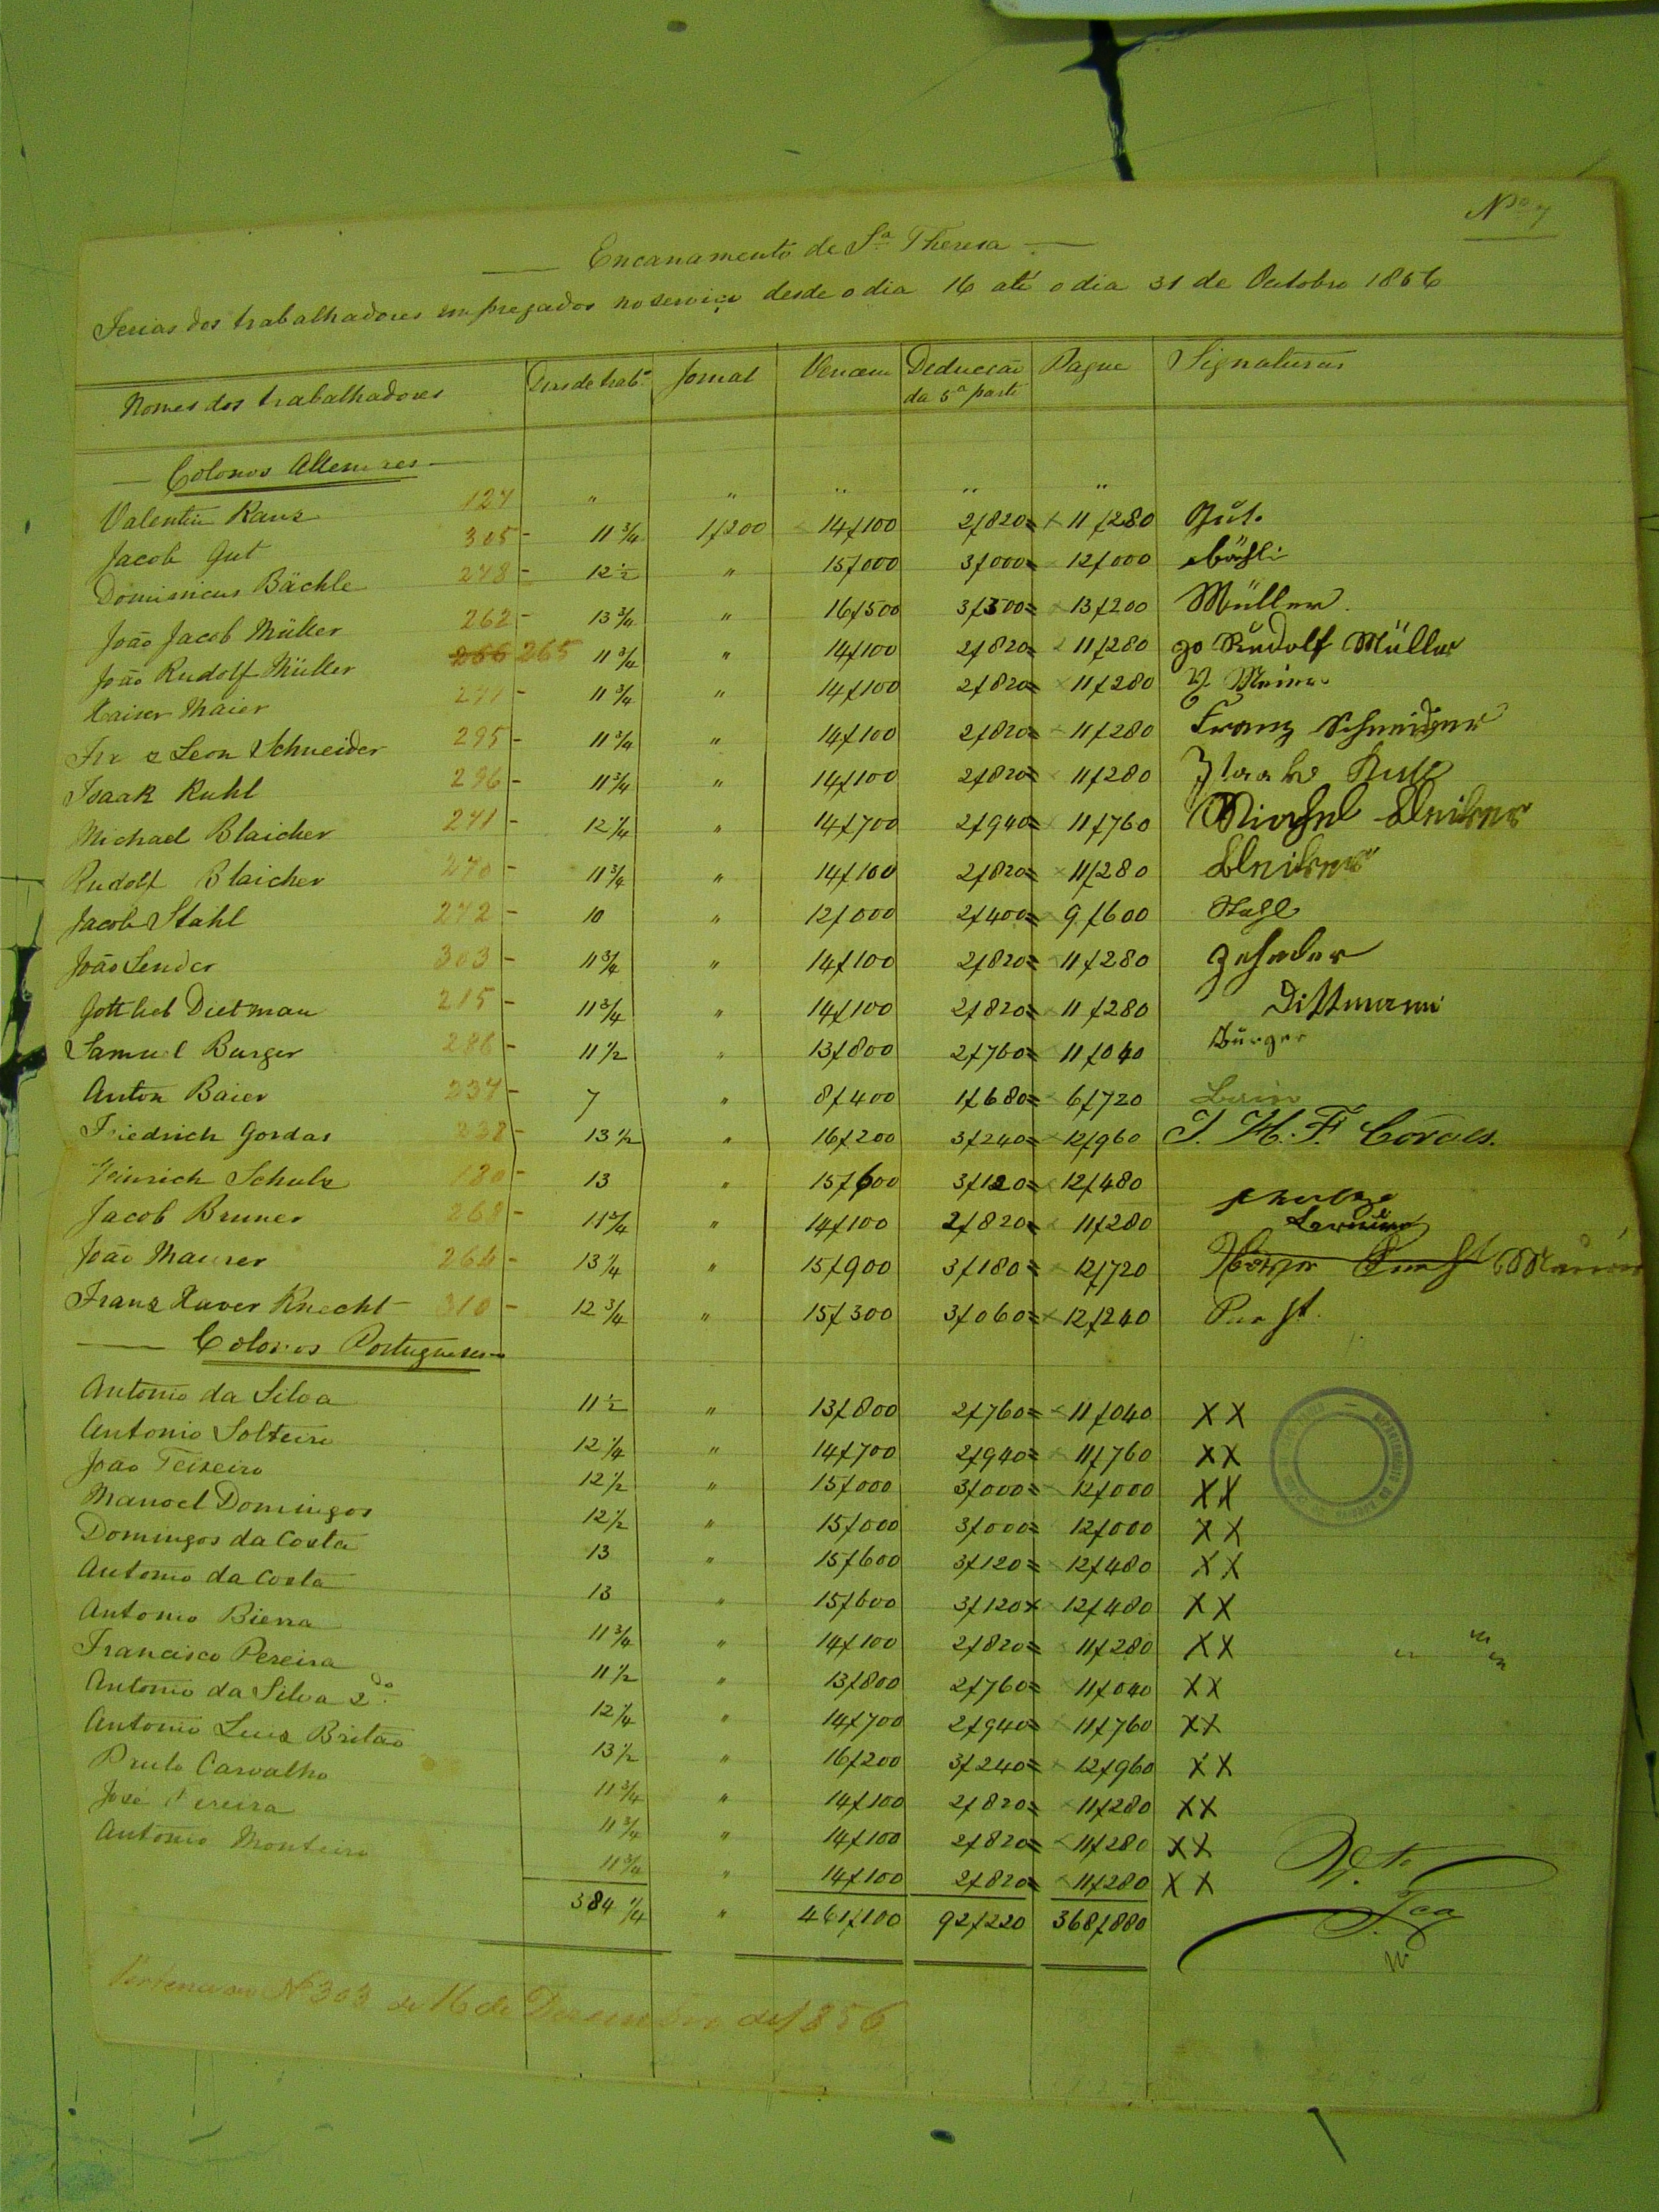 Nro 7
Encanamento de Sta Theresa
Ferias dos trabalhadores empregados no serviço desde o dia 16 até o dia 31 de Outubro 1856
Nomes dos trabalhadores Dias de trabo Jornal Vencem Deducção da 5a parte Pague Signaturas
Colonos Allemães
Valentin Kanz 127 " " " " "
Jacob Gut 305 - 11 3/4 1/200 14/100 2/820= 11/280 Gut.
Dominicus Bächle 278 - 12 1/2 " 15/000 3/000= 12/000 Bächli
João Jacob Müller 262 - 13 3/4 " 16/500 3/300= 13/200 Müller.
João Rudolf Müller 266 265 11 3/4 " 14/100 2/820= 11/280 Rudolf Müller
Kaiser Maier 271 - 11 3/4 " 14/100 2/820= 11/280 Meier
Leon Schneider 295 - 11 3/4 " 14/100 2/820= 11/280 Franz Schneider
Isaak Ruhl 296 - 11 3/4 " 14/100 2/820= 11/280 Isaak Rull
Michael Blaicher 241 - 12 1/4 " 14/700 2/940= 11/760 Michael Bleicher
Rudolf Blaicher 270 - 11 3/4 " 14/100 2/820= 11/280 Bleicher
Jacob Stahl 272 - 10 " 12/000 2/400= 9/600 Stahl
João Sender 303 - 11 3/4 " 14/100 2/820= 11/280 Zehnder
Gottlieb Dietman 215 - 11 3/4 " 14/100 2/820= 11/280 Dittmann
Samuel Burger 286 - 11 1/2 " 13/800 2/760= 11/040 Burger
Anton Baier 237 - 7 " 8/400 1/680= 6/720
Friedrich Gordas 238 - 13 1/2 " 16/200 3/240= 12/960 J. H. F. Cordes.
Heinrich Schulz 180 - 13 " 15/600 3/120= 12/480
Jacob Bruner 268 - 11 3/4 " 14/100 2/820= 11/280
João Maurer 264 - 13 1/4 " 15/900 3/180= 12/720 Maurer
Franz Xaver Knecht 310 - 12 3/4 " 15/300 3/060= 12/240
Colonos Portugueses
Antonio da Silva 11 1/2 " 13/800 2/760= 11/040 X X
Antonio Solteiro 12 1/4 " 14/700 2/940= 11/760 X X
João Teixeiro 12 1/2 " 15/000 3/000= 12/000 X X
Manoel Domingos 12 1/2 " 15/000 3/000= 12/000 X X
Domingos da Costa 13 " 15/600 3/120= 12/480 X X
Antonio da Costa 13 " 15/600 3/120x 12/480 X X
Antonio Bierra 11 3/4 " 14/100 2/820= 11/280 X X
Francisco Pereira 11 1/2 " 13/800 2/760= 11/040 X X
Antonio da Silva 2do 12 1/4 " 14/700 2/940= 11/760 X X
Antonio Luiz Britão 13 1/2 " 16/200 3/240= 12/960 X X
Carvalho 11 3/4 " 14/100 2/820= 11/280 X X
José Pereira 11 3/4 " 14/100 2/820= 11/280 X X
Antonio Monteiro 11 3/4 " 14/100 2/820= 11/280 X X
384 1/4 " 461/100 92/220 368/880
No 303 de 16 de Dezembro de 1856